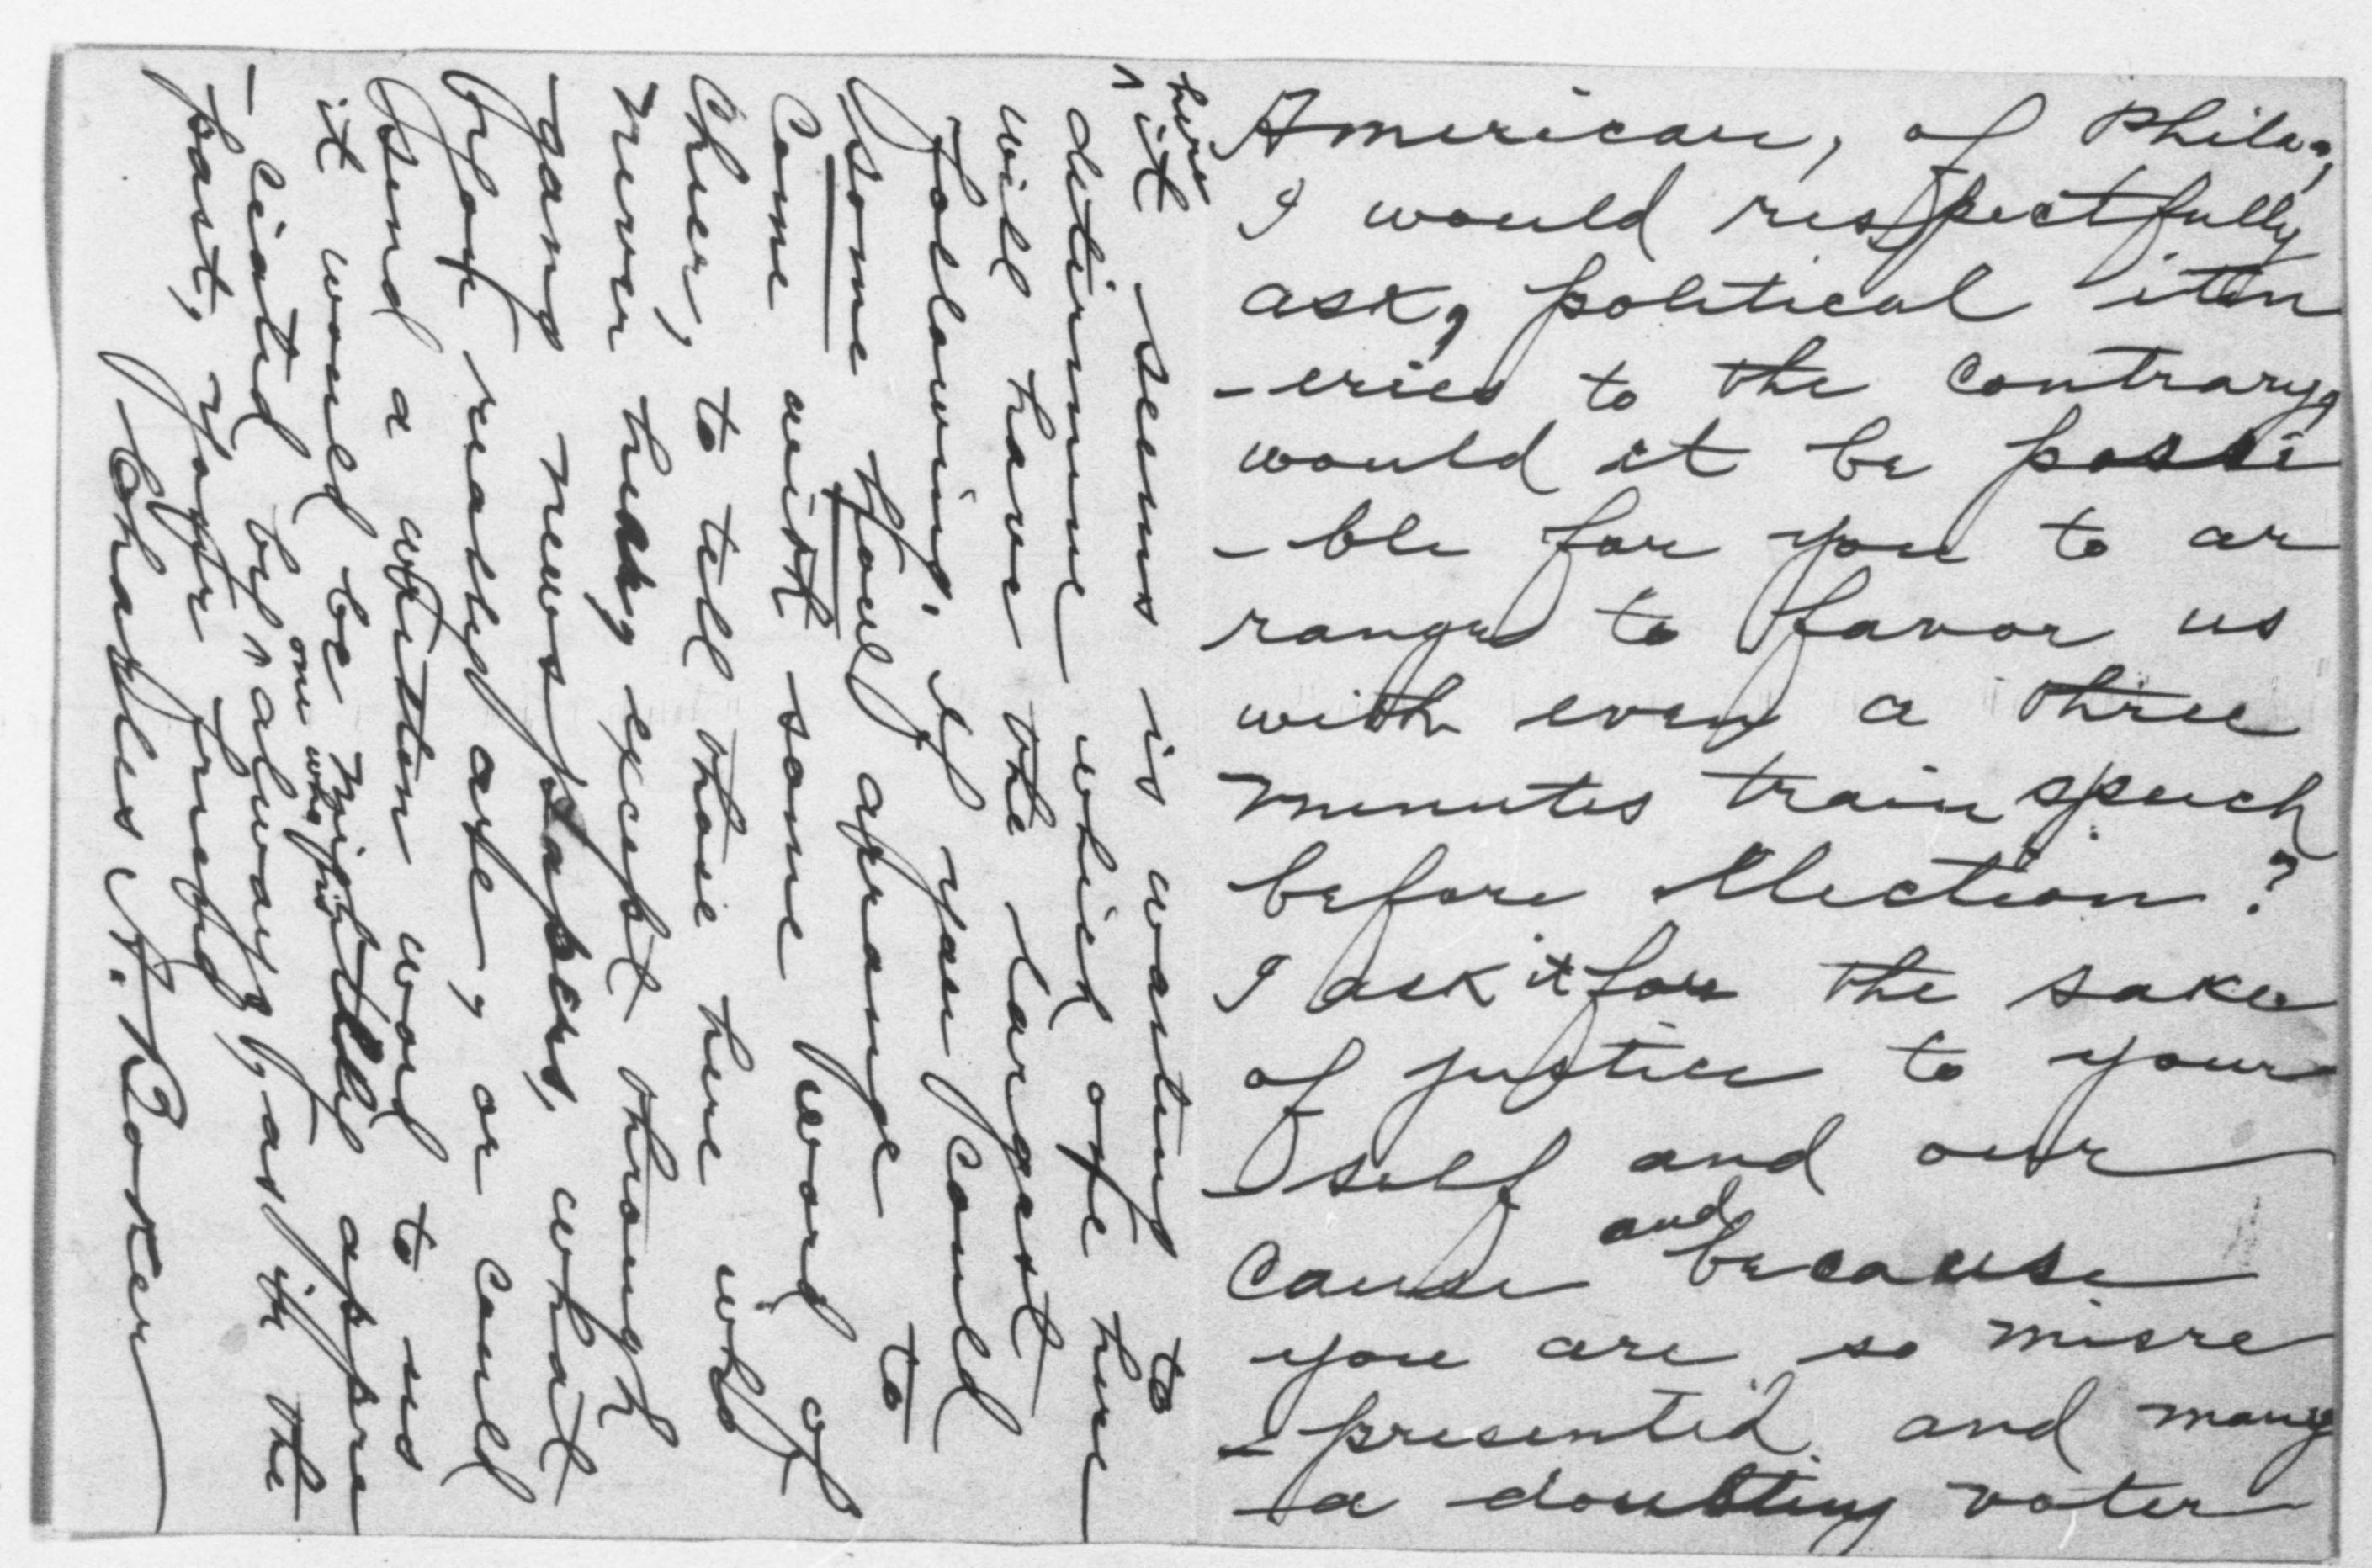 American, of Phila.,
I would respectfully
ask, political itin
-eries to the contrary,
would it be possi
-ble for you to ar
range to favor us
with even a three
minutes train speech
before Election?
I ask it for the sake
of justice to your
-self and our
cause and because
you are so misre
-presented and many
a doubting voter
here it seems is wanting to
determine which ofe here
will have the largest
following. If you could
some how arrange to
come with some word of
cheer, to tell those here who
never hear, except through
yang newspapers, what
you really are, or could
send a written word to us
it would be mightily appre
-ciated by one who is always, as in the
past, your friend
Charles A. Booker